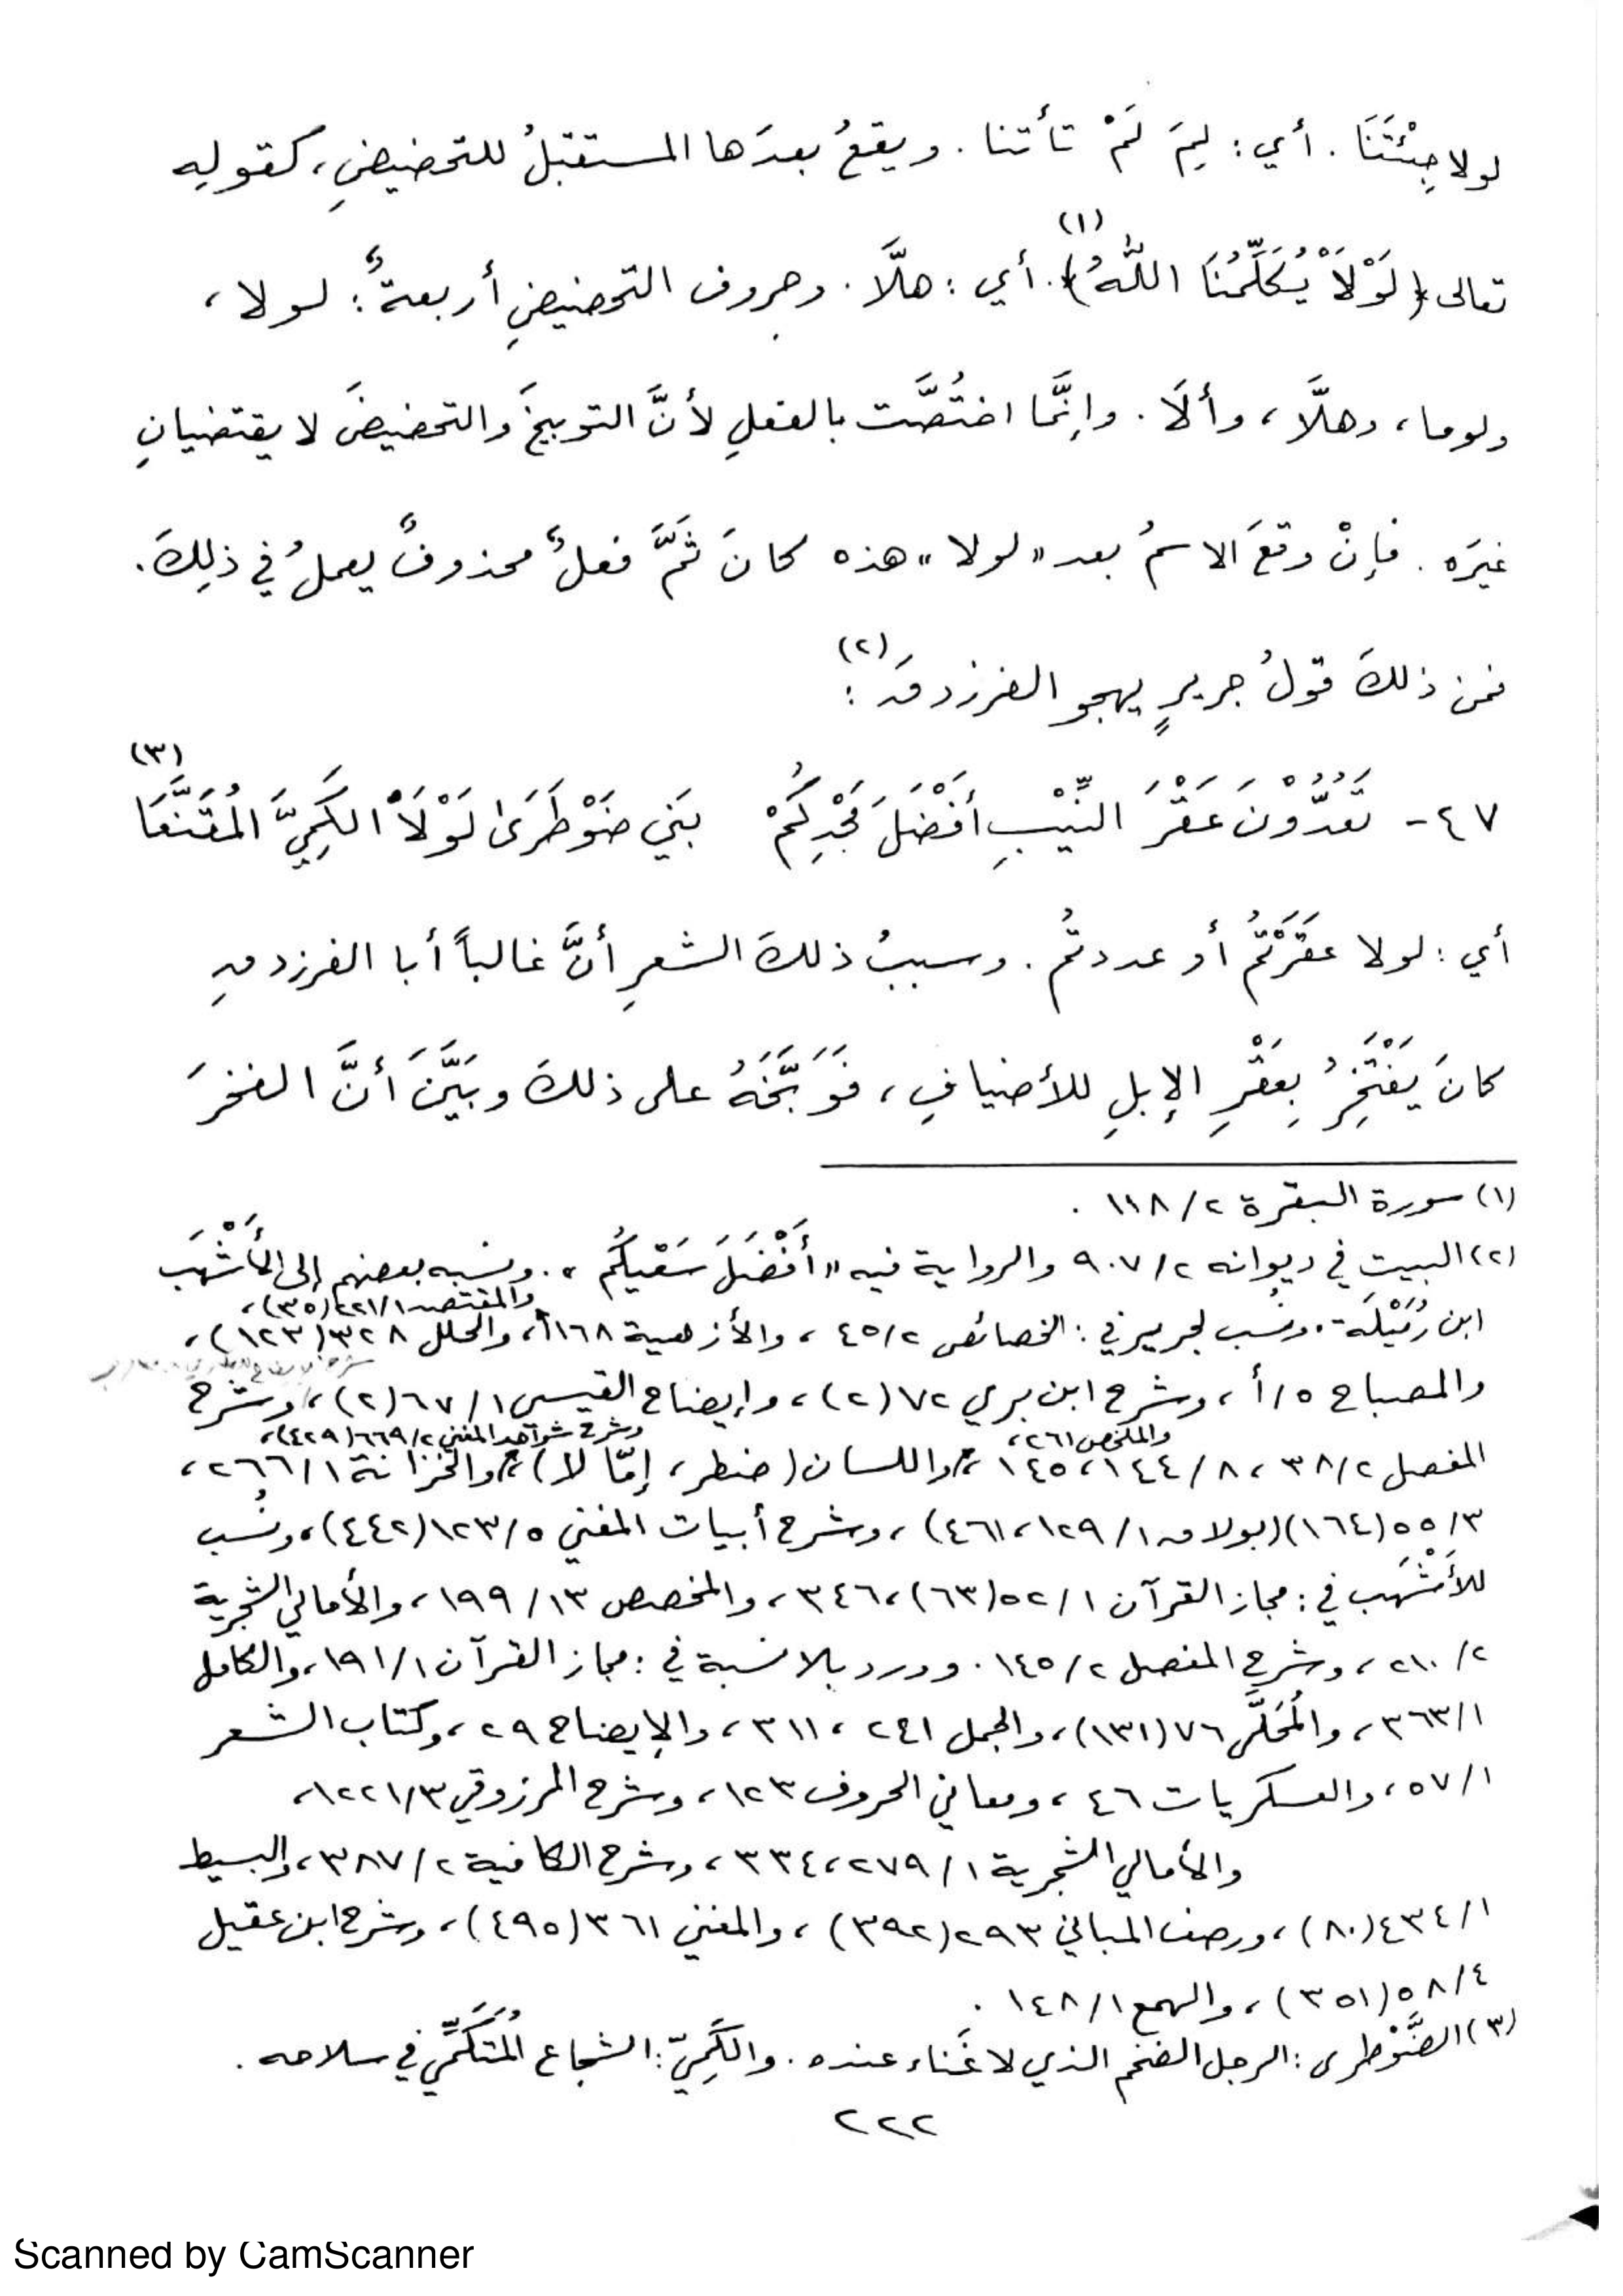 لولا جِئْتَنَا . أي : لِمَ لَمْ تأتنا . ويقعُ بعدَها المستقبلُ للتحضيضِ ، كقولِهِ
(١)
تعالى ﴿لَوْلَاْ يُكَلِّمُنَا اللهُ﴾. أي : هلَّا . وحروف التحضيضِ أربعةٌ : لولا ،
ولوما ، وهلَّا ، وألَا . وإِنَّما اختُصَّت بالفعلِ لأنَّ التوبيخَ والتحضيضَ لا يقتضيانِ
غيرَه . فإنْ وقعَ الاسمُ بعد «لولا» هذه كانَ ثَمَّ فعلٌ محذوفٌ يعملُ في ذلِكَ .
(٢)
فمن ذلكَ قولُ جريرٍ يهجو الفرزدقَ :
(٣)
٤٧ - تَعُدُّوْنَ عَقْرَ النِّيْبِ أَفْضَلَ مَجْدِكُمْ بَنِي ضَوْطَرَىٰ لَوْلَاْ الكَمِيَّ المُقَنَّعَا
أي : لولا عقَرْتُمُ أو عددتُم . وسببُ ذلكَ الشعرِ أنَّ غالباً أبا الفرزدقِ
كانَ يَفْتَخِرُ بِعَقْرِ الإبلِ للأضيافِ ، فَوَبَّخَهُ على ذلكَ وبَيَّنَ أنَّ الفخرَ
(١) سورة البقرة ٢/ ١١٨ .
(٢) البيت في ديوانه ٢/ ٩٠٧ والرواية فيه «أَفْضَلَ سَعْيِكُم» . ونسبه بعضهم إلى الأَشْهَب
والمقتصد ١/ ٢٢١ (٣٥) ،
ابن رُمَيْلَة . ونُسب لجرير في : الخصائص ٢/ ٤٥ ، والأزهية ١٦٨ ، والحلل ٣٢٨ (١٢٣) ،
والمصباح ٥/أ ، وشرح ابن بري ٧٢ (٢) ، وإيضاح القيسي ١/ ٦٧ (٢) ، وشرح
والملخص ٢٦١ ، وشرح شواهد المغني ٢/ ٦٦٩ (٤٢٩) ،
المفصل ٢/ ٣٨ ، ٨/ ١٤٤ ، ١٤٥ ، واللسان ( ضطر ، إمّا لا ) ، والخزانة ١/ ٢٦٦ ،
٣/ ٥٥ (١٦٤) (بولاق ١/ ١٢٩ ، ٤٦١) ، وشرح أبيات المغني ٥/ ١٢٣ (٤٤٢) ، ونُسب
للأَشْهَب في : مجاز القرآن ١/ ٥٢ (٦٣) ، ٣٤٦ ، والمخصص ١٣/ ١٩٩ ، والأمالي الشجرية
٢/ ٢١٠ ، وشرح المفصل ٢/ ١٤٥ . وورد بلا نسبة في : مجاز القرآن ١/ ١٩١ ، والكامل
١/ ٣٦٣ ، والمُحَلَّى ٧٦ (١٣١) ، والجمل ٢٤١ ، ٣١١ ، والإيضاح ٢٩ ، وكتاب الشعر
١/ ٥٧ ، والعسكريات ٤٦ ، ومعاني الحروف ١٢٣ ، وشرح المرزوقي ٣/ ١٢٢١ ،
والأمالي الشجرية ١/ ٢٧٩ ، ٣٣٤ ، وشرح الكافية ٢/ ٣٨٧ ، والبسيط
١/ ٤٣٤ (٨٠) ، ورصف المباني ٢٩٣ (٣٩٢) ، والمغني ٣٦١ (٤٩٥) ، وشرح ابن عقيل
٤/ ٥٨ (٣٥١) ، والهمع ١/ ١٤٨ .
(٣) الضَّوْطرى : الرجل الضخم الذي لا غَناء عنده . والكَمِيّ : الشجاع المُتَكَمِّي في سلاحه .
٢٢٢
Scanned by CamScanner